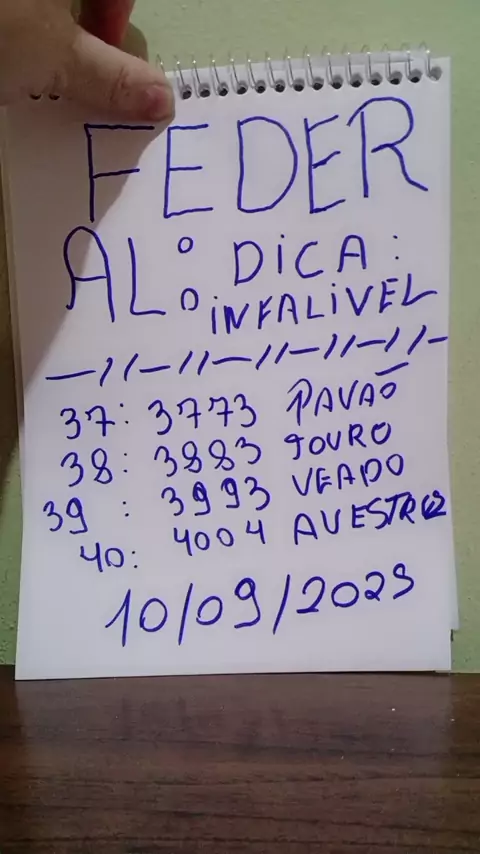 FEDER
AL: DICA:
INFALIVEL
—//—//—//—//—//—
37: 3773 PAVÃO
38: 3883 TOURO
39: 3993 VEADO
40: 4004 AVESTRUZ
10/09/2023